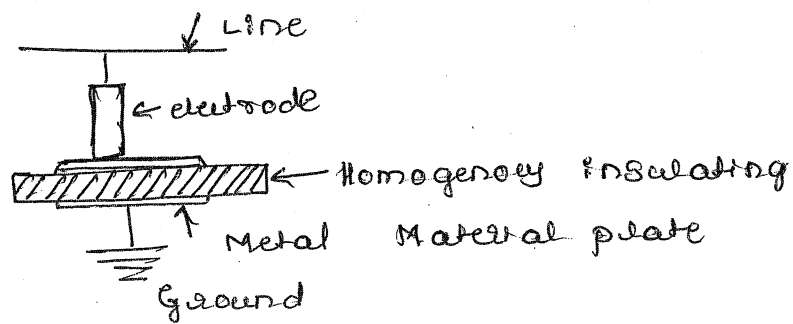 Line
electrode
Homogenoey insulating
Metal Material plate
Ground